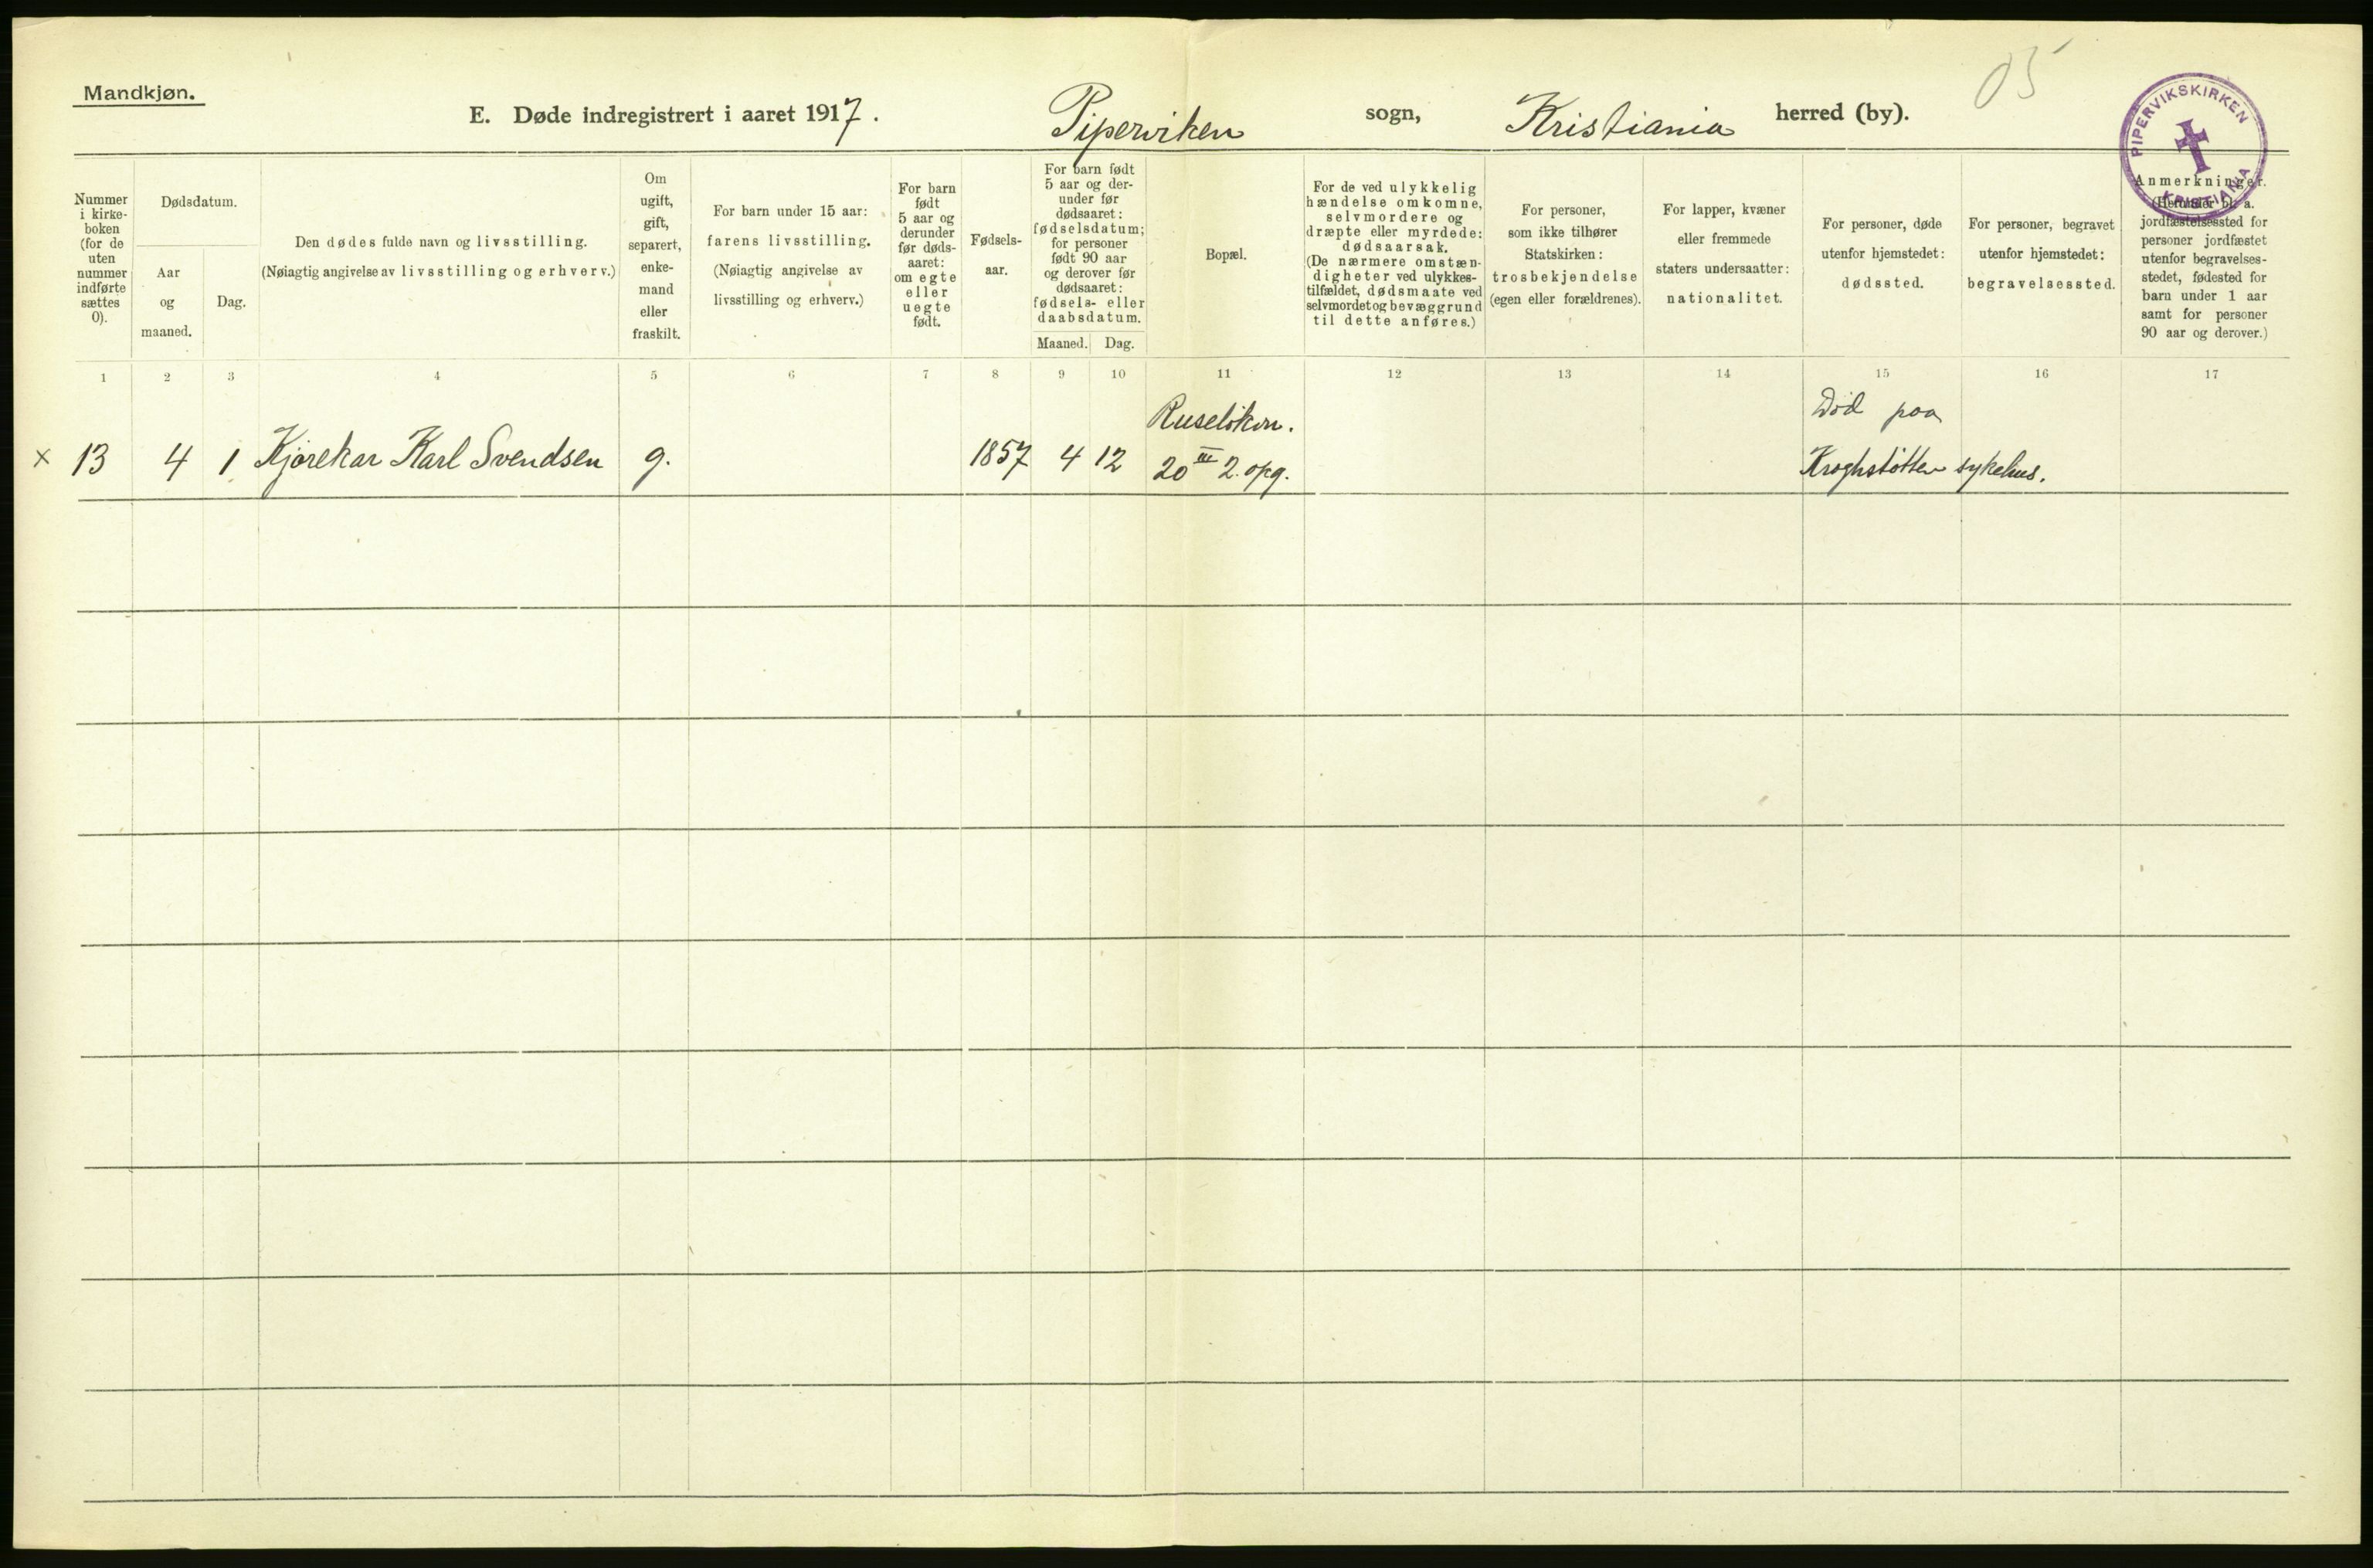 Mandkjøn.
E. Døde indregistrert i aaret 1917. Piperviken sogn, Kristiania herred (by).
05
PIPERVIKSKIRKEN
KRISTIANIA
Nummer
i kirke-
boken
(for de
uten
nummer
indførte
sættes
0).
Dødsdatum.
Aar
og
maaned.
Dag.
Den dødes fulde navn og livsstilling.
(Nøiagtig angivelse av livsstilling og erhverv.)
Om
ugift,
gift,
separert,
enke-
mand
eller
fraskilt.
For barn under 15 aar:
farens livsstilling.
(Nøiagtig angivelse av
livsstilling og erhverv.)
For barn
født
5 aar og
derunder
før døds-
aaret:
om egte
eller
uegte
født.
Fødsels-
aar.
For barn født
5 aar og der-
under før
dødsaaret:
fødselsdatum;
for personer
født 90 aar
og derover før
dødsaaret:
fødsels- eller
daabsdatum.
Maaned. Dag.
Bopæl.
For de ved ulykkelig
hændelse omkomne,
selvmordere og
dræpte eller myrdede:
dødsaarsak.
(De nærmere omstæn-
digheter ved ulykkes-
tilfældet, dødsmaate ved
selvmordet og bevæggrund
til dette anføres.)
For personer,
som ikke tilhører
Statskirken:
trosbekjendelse
(egen eller forældrenes).
For lapper, kvæner
eller fremmede
staters undersaatter:
nationalitet.
For personer, døde
utenfor hjemstedet:
dødssted.
For personer, begravet
utenfor hjemstedet:
begravelsessted.
Anmerkninger.
(Herunder bl. a.
jordfæstelsessted for
personer jordfæstet
utenfor begravelses-
stedet, fødested for
barn under 1 aar
samt for personer
90 aar og derover.)
1 2 3 4 5 6 7 8 9 10 11 12 13 14 15 16 17
Ruseløkvn. Død paa
x 13 4 1 Kjørekar Karl Svendsen g. 1857 4 12 20 III 2. opg. Kroghstøtten sykehus.